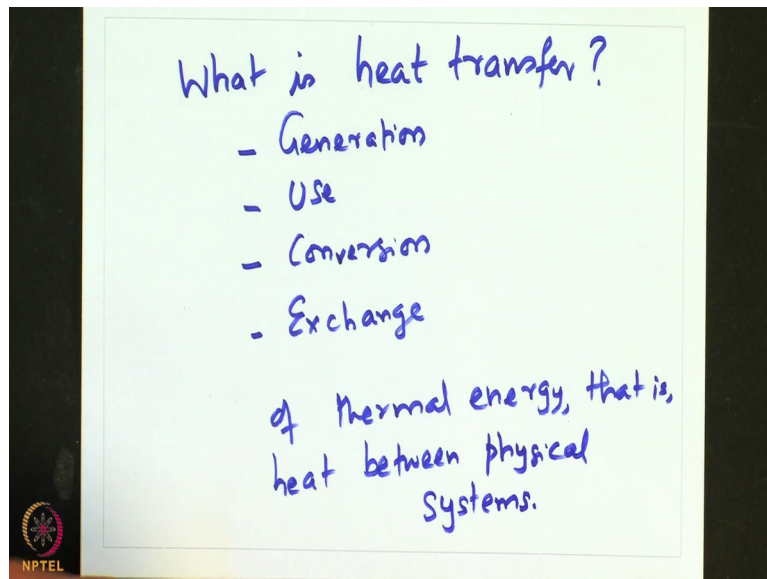 What is heat transfer?
- Generation
- Use
- Conversion
- Exchange
of thermal energy, that is,
heat between physical
systems.
NPTEL